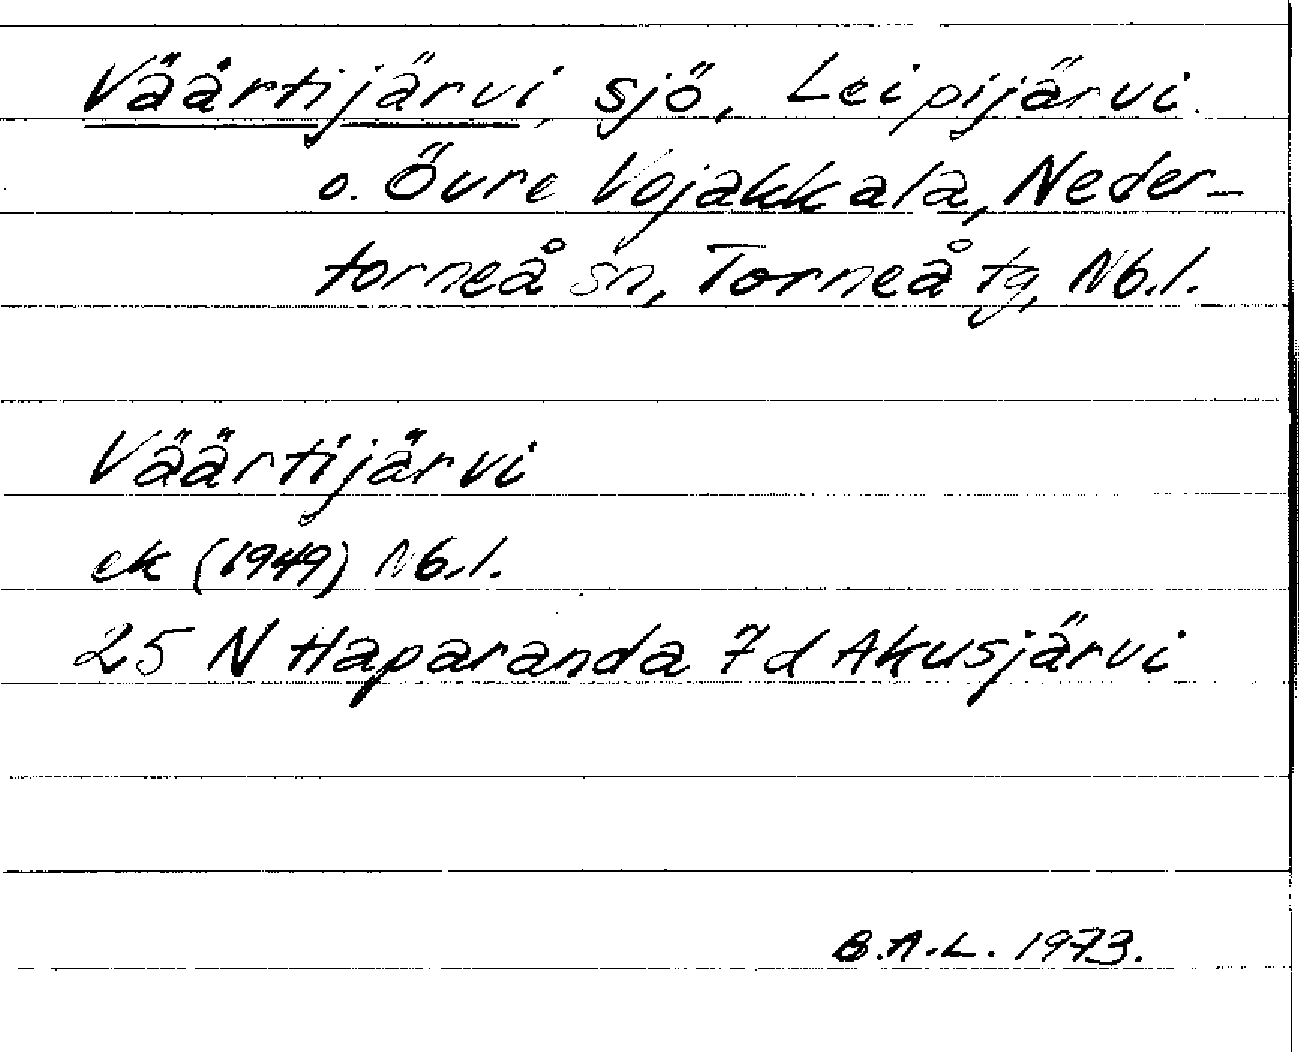 Väärtijärvi, sjö, Leipijärvi
o. Övre Vojakkala, Neder-
torneå sn, Torneå tg, Nb.l.
Väärtijärvi
ek (1949) Nb.l.
25 N Haparanda 7d Akusjärvi
B.A.L. 1973.